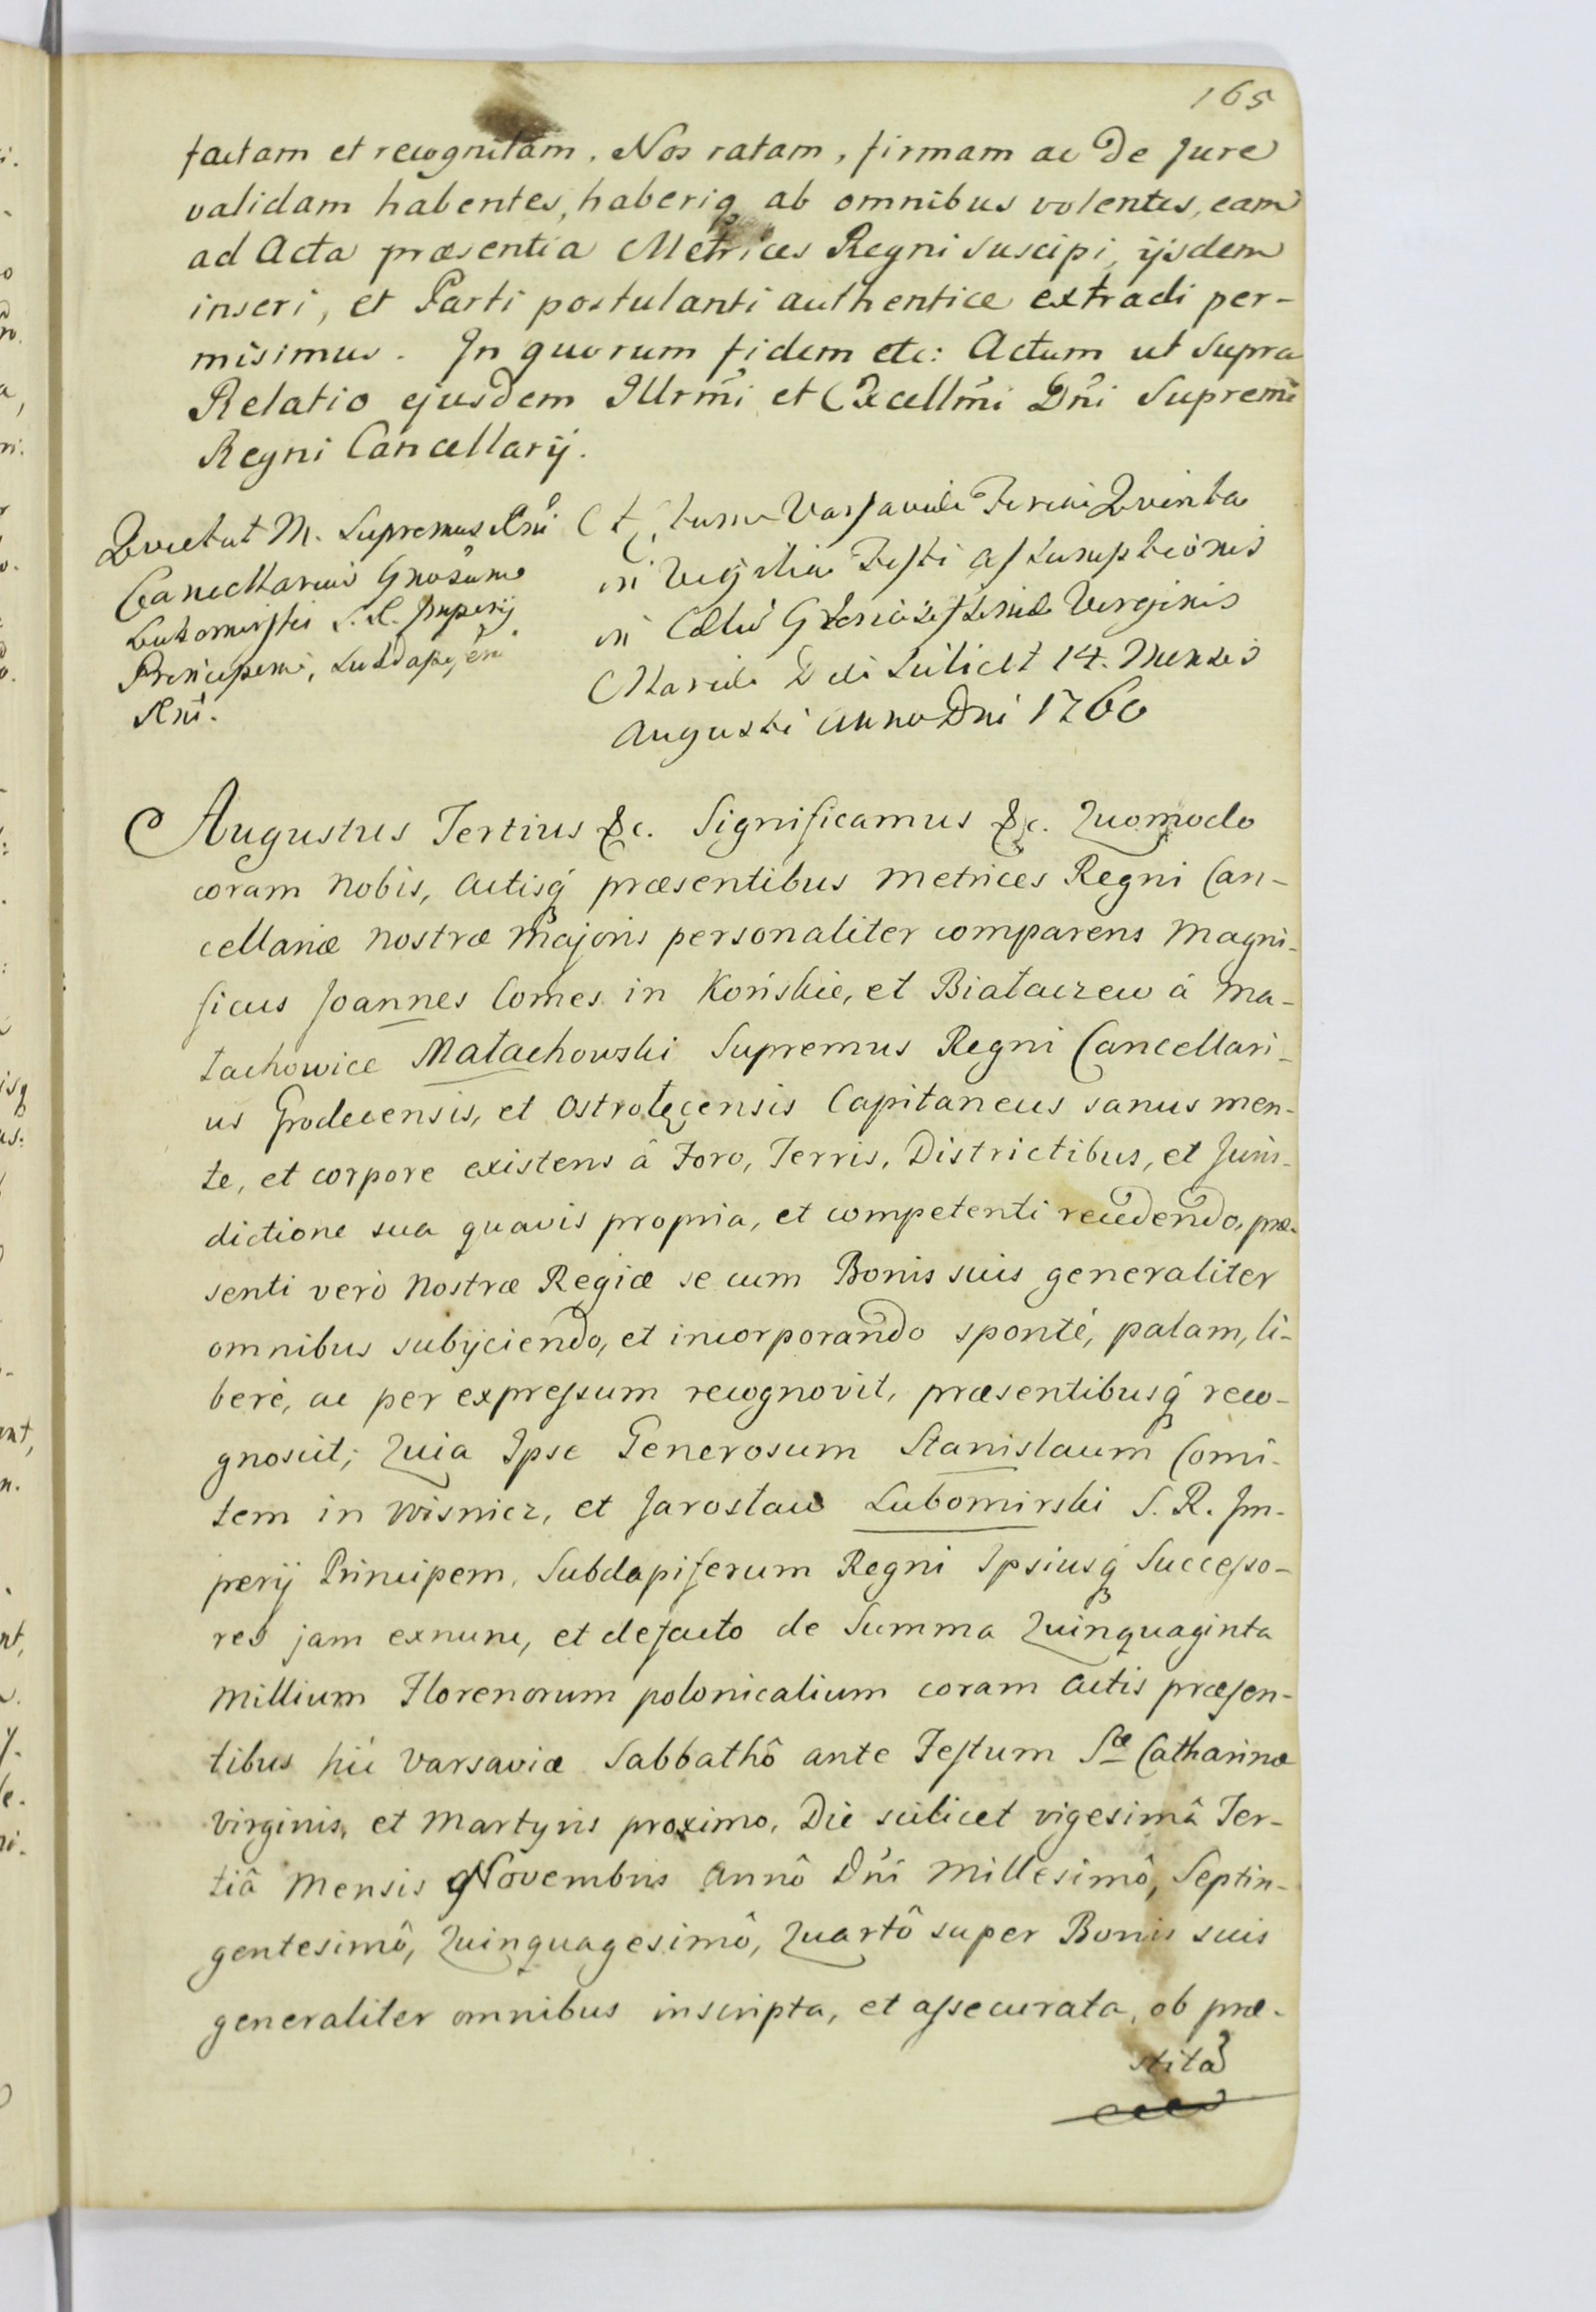 165
factam et recognitam. Nos ratam, firmam ac de Jure
validam habentes, haberiq ab omnibus volentes, eam
ad Acta præsentia Metrices Regni suscipi, ijsdem
inseri, et Parti postulanti authentice extradi per-
misimus. In quorum fidem etc: Actum ut supra
Relatio ejusdem Illrmi et Excellmi Dni Supremi
Regni Cancellarij.
Quietat M. Supremus Rni
Cancellarius Gnosum
Lubomirski S. R. Imperij
Principem, Subdapif̃erũ
Rni.
Actum Varsaviæ Feria Quinta
in Vigilia Festi Assumptionis
in Cælũ Gloriosissimæ Virginis
Mariæ Die scilicet 14. Mensis
Augusti Anno Dni 1760
Augustus Tertius &c. Significamus &c. Quomodo
coram nobis, Actisq́ præsentibus Metrices Regni Can-
cellariæ nostræ Majoris personaliter comparens Magni-
ficus Joannes Comes in Końskie, et Białaczew á Ma-
łachowice Małachowski Supremus Regni Cancellari-
us Grodecensis, et Ostrołęcensis Capitaneus sanus men-
te, et corpore existens â Foro, Terris, Districtibus, et Juris-
dictione sua quavis propria, et competenti recedendo, præ-
senti verò Nostræ Regiæ se cum Bonis suis generaliter
omnibus subijciendo, et incorporando spontè, palam, li-
berè, ac per expressum recognovit, præsentibusq́ reco-
gnoscit; Quia Ipse Generosum Stanislaum Comi-
tem in Wisnicz, et Jarosław Lubomirski S. R. Im-
perij Principem, Subdapiferum Regni Ipsiusq́ Successo-
res jam exnunc, et defacto de Summa Quinquaginta
Millium Florenorum polonicalium coram Actis præsen-
tibus hic Varsaviæ Sabbathô ante Festum Sæ Catharinæ
Virginis, et Martyris proximo, Die scilicet vigesimâ Ter-
tiâ Mensis Novembris Annô Dni Millesimô, Septin-
gentesimô, Quinquagesimô, Quartô super Bonis suis
generaliter omnibus inscripta, et assecurata, ob præ-
stita